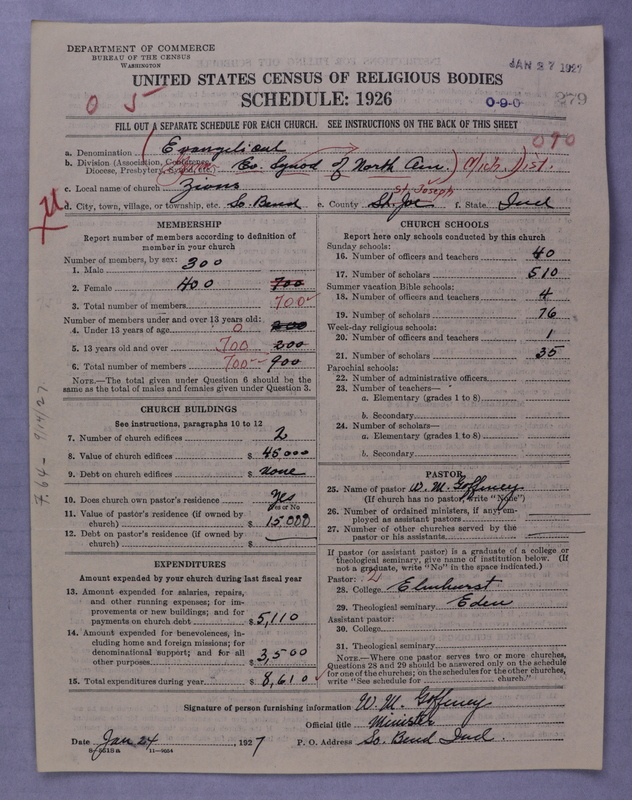 DEPARTMENT OF COMMERCE
BUREAU OF THE CENSUS
WASHINGTON
JAN 27 1927
UNITED STATES CENSUS OF RELIGIOUS BODIES
SCHEDULE: 1926
0 5
0-9-0
279
FILL OUT A SEPARATE SCHEDULE FOR EACH CHURCH. SEE INSTRUCTIONS ON THE BACK OF THIS SHEET
090
a. Denomination Evangelical
b. Division (Association, Conference, Diocese, Presbytery, Synod, etc.) Ev. Synod of North Am. Mich. Dist.
c. Local name of church Zions
St. Joseph
d. City, town, village, or township, etc. So. Bend e. County St. Joe f. State Ind
MEMBERSHIP
Report number of members according to definition of
member in your church
Number of members, by sex:
1. Male 300
2. Female 400 700
3. Total number of members 700
Number of members under and over 13 years old:
4. Under 13 years of age 0 200
5. 13 years old and over 700 200
6. Total number of members 700 900
NOTE.—The total given under Question 6 should be the
same as the total of males and females given under Question 3.
CHURCH BUILDINGS
See instructions, paragraphs 10 to 12
7. Number of church edifices 2
8. Value of church edifices $ 45000
9. Debt on church edifices $ none
10. Does church own pastor's residence Yes
Yes or No
11. Value of pastor's residence (if owned by
church) $ 15000
12. Debt on pastor's residence (if owned by
church) $
EXPENDITURES
Amount expended by your church during last fiscal year
13. Amount expended for salaries, repairs,
and other running expenses; for im-
provements or new buildings; and for
payments on church debt $ 5,110
14. Amount expended for benevolences, in-
cluding home and foreign missions; for
denominational support; and for all
other purposes $ 3,500
15. Total expenditures during year $ 8,610
CHURCH SCHOOLS
Report here only schools conducted by this church
Sunday schools:
16. Number of officers and teachers 40
17. Number of scholars 510
Summer vacation Bible schools:
18. Number of officers and teachers 4
19. Number of scholars 76
Week-day religious schools:
20. Number of officers and teachers 1
21. Number of scholars 35
Parochial schools:
22. Number of administrative officers
23. Number of teachers—
a. Elementary (grades 1 to 8)
b. Secondary
24. Number of scholars—
a. Elementary (grades 1 to 8)
b. Secondary
PASTOR
25. Name of pastor W. M. Goffeney
(If church has no pastor, write "None")
26. Number of ordained ministers, if any, em-
ployed as assistant pastors
27. Number of other churches served by the
pastor or his assistants
If pastor (or assistant pastor) is a graduate of a college or
theological seminary, give name of institution below. (If
not a graduate, write "No" in the space indicated.)
Pastor: 2
28. College Elmhurst
29. Theological seminary Eden
Assistant pastor:
30. College
31. Theological seminary
NOTE.—Where one pastor serves two or more churches,
Questions 28 and 29 should be answered only on the schedule
for one of the churches; on the schedules for the other churches,
write "See schedule for church."
Signature of person furnishing information W. M. Goffeney
Official title Minister
Date Jan 24, 1927 P. O. Address So. Bend Ind.
8-5518a 11-9054